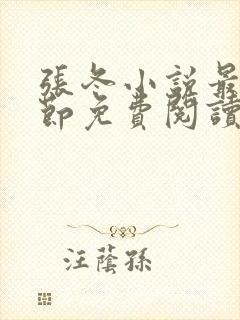 張冬小說最
節免費閱讀
汪蔭孫